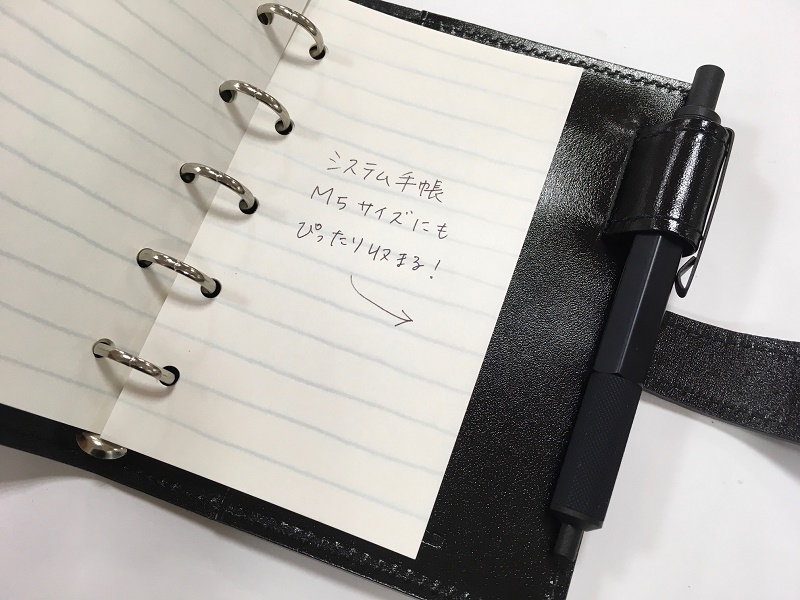 システム手帳
M5サイズにも
ぴったり収まる!